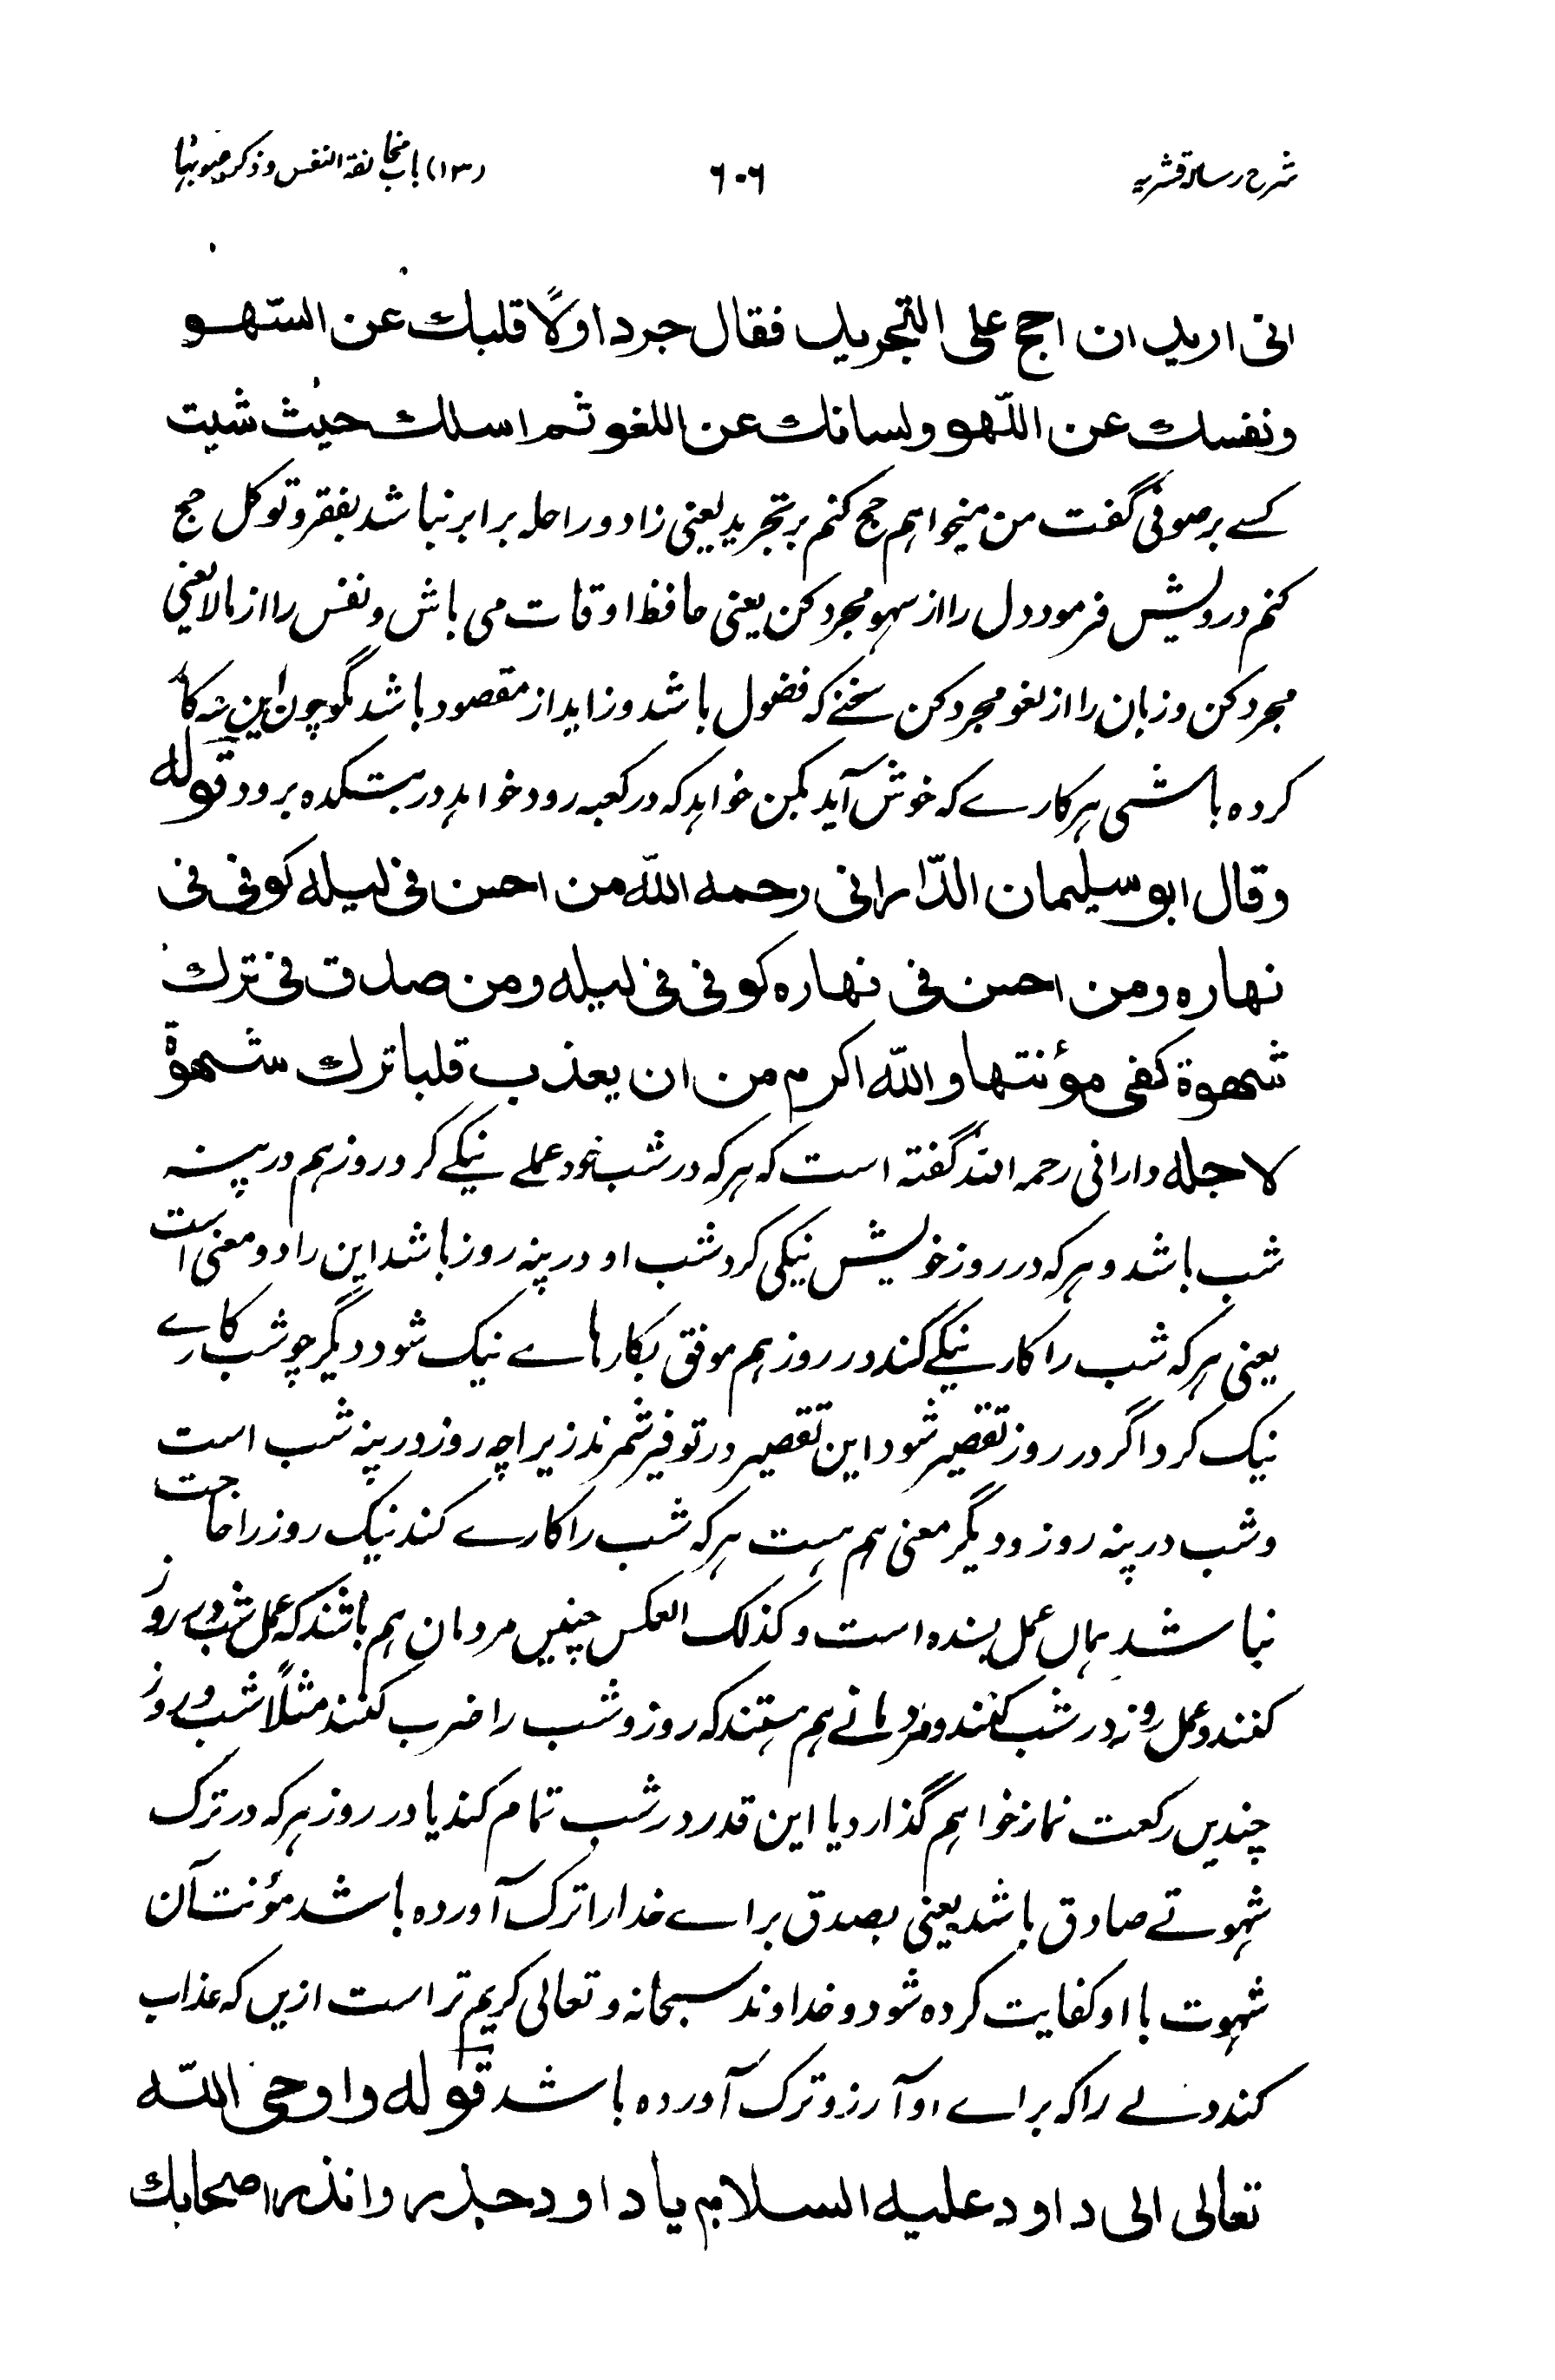 شرح رسالۂ قشیریہ ۶۰۶ (۱۳) باب مخالفۃ النفس و ذکر عیوبہا
انی ارید ان احج علی التجرید فقال جرد اولًا قلبك عن السّهو
ونفسك عن اللّهو ولسانك عن اللغو ثم اسلك حیث شیت
کسے بر صوفی گفت من میخواہم حج کنم بر تجرید یعنی زاد و راحلہ برابر نباشد بفقر و توکل حج
کنم درویش فرمود دل را از سہو مجرد کن یعنی حافظ اوقات می باش و نفس را از مالا یعنی
مجرد کن و زبان را از لغو مجرد کن سخنے کہ فضول باشد و زاید از مقصود باشد مگو چون این سہ کار
کردہ باشی ہر کارے کہ خوش آید بکن خواہد کہ در کعبہ رود خواہد در بتکدہ برود قوله
وقال ابو سلیمان الدّارانی رحمه اللّه من احسن فی لیله کوفی فی
نهاره ومن احسن فی نهاره کوفی فی لیله ومن صدق فی ترك
شهوة کفی مؤنتها واللّه اکرم من ان یعذب قلبا ترك شهوة
لاجله دارانی رحمہ اللہ گفتہ است کہ ہر کہ در شب خود عملے نیکے کرد روز ہم در پنہ
شب باشد و ہر کہ در روز خویش نیکی کرد شب او در پنہ روز باشد این را دو معنی است
یعنی ہر کہ شب را کار نیکے کند در روز ہم موفق بکارہاے نیک شود دیگر چو شب کارے
نیک کرد اگر در روز تقصیر شود این تقصیر در توفیر شمرند زیراچہ روز در پنہ شب است
و شب در پنہ روز و دیگر معنی ہم ہست ہر کہ شب را کارے کند نیک روز را حاجت
نباشد ہماں عمل بسندہ است و کذلک العکس چنیں مردمان ہم باشند کہ عمل شب در روز
کنند و عمل روز در شب کنند و مردمانے ہم ہستند کہ روز و شب را ضرب کنند مثلًا شب و روز
چندیں رکعت نماز خواہم گذارد یا این قدر در شب تمام کند یا در روز ہر کہ در ترک
شہوتے صادق باشد یعنی بصدق براے خدا را ترک آوردہ باشد مؤنت آن
شہوت با او کفایت کردہ شود و خداوند سبحانہ و تعالی کریم تر است ازیں کہ عذاب
کند دلے را کہ براے او آرزو ترک آوردہ باشد قوله واوحی اللّه
تعالی الی داود علیه السلام یا داود حذر وانذر اصحابك